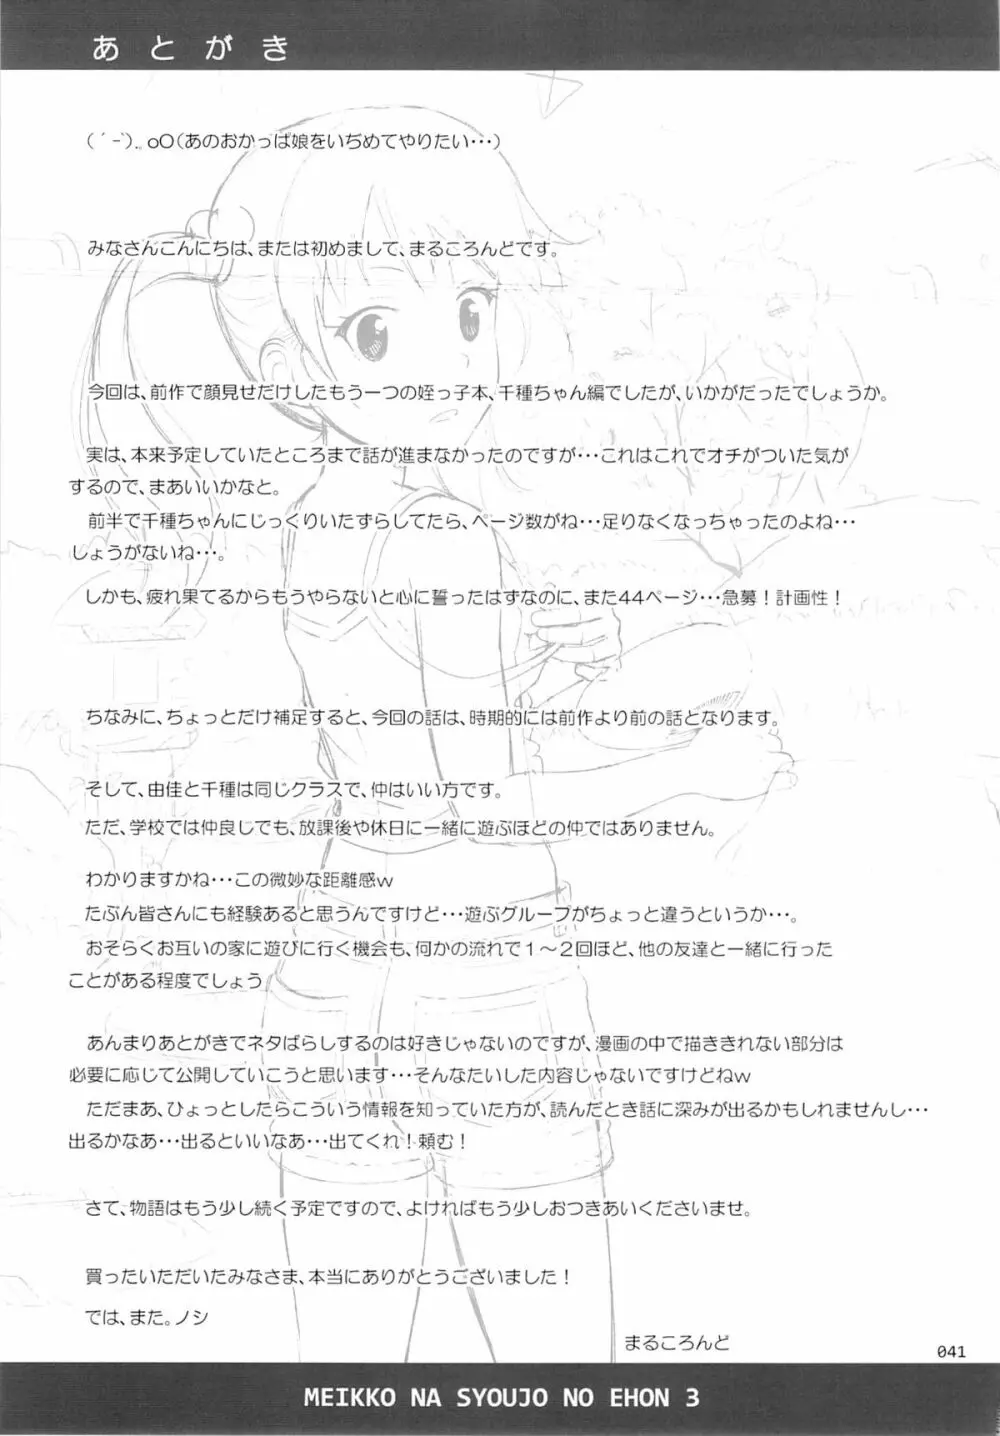 あとがき
( ´-`). oO(あのおかっぱ娘をいぢめてやりたい･･･)
みなさんこんにちは、または初めまして、まるころんどです。
今回は、前作で顔見せだけしたもう一つの姪っ子本、千種ちゃん編でしたが、いかがだったでしょうか。
実は、本来予定していたところまで話が進まなかったのですが･･･これはこれでオチがついた気が
するので、まあいいかなと。
前半で千種ちゃんにじっくりいたずらしてたら、ページ数がね･･･足りなくなっちゃったのよね･･･
しょうがないね･･･。
しかも、疲れ果てるからもうやらないと心に誓ったはずなのに、また44ページ･･･急募！計画性！
ちなみに、ちょっとだけ補足すると、今回の話は、時期的には前作より前の話となります。
そして、由佳と千種は同じクラスで、仲はいい方です。
ただ、学校では仲良しでも、放課後や休日に一緒に遊ぶほどの仲ではありません。
わかりますかね･･･この微妙な距離感w
たぶん皆さんにも経験あると思うんですけど･･･遊ぶグループがちょっと違うというか･･･。
おそらくお互いの家に遊びに行く機会も、何かの流れで１～２回ほど、他の友達と一緒に行った
ことがある程度でしょう
あんまりあとがきでネタばらしするのは好きじゃないのですが、漫画の中で描ききれない部分は
必要に応じて公開していこうと思います･･･そんなたいした内容じゃないですけどねw
ただまあ、ひょっとしたらこういう情報を知っていた方が、読んだとき話に深みが出るかもしれませんし･･･
出るかなあ･･･出るといいなあ･･･出てくれ！頼む！
さて、物語はもう少し続く予定ですので、よければもう少しおつきあいくださいませ。
買ったいただいたみなさま、本当にありがとうございました！
では、また。ノシ
まるころんど
041
MEIKKO NA SYOUJO NO EHON 3